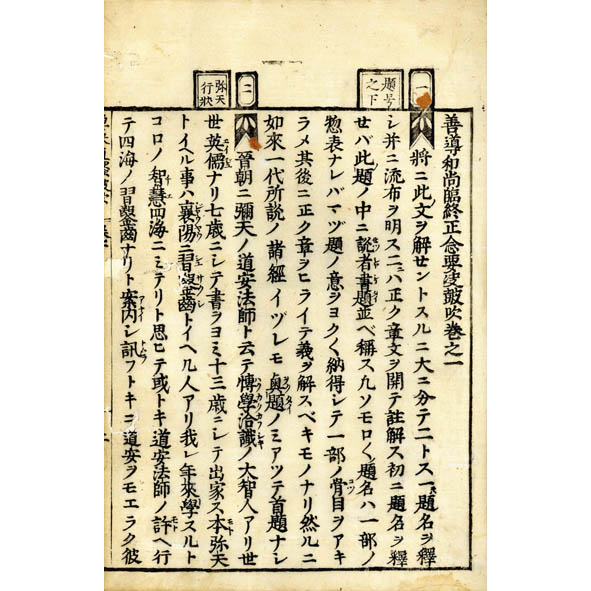 善導和尚臨終正念要決皷吹卷之一
一
題号之下
将ニ此文ヲ解セントスルニ大ニ分テ二トス一ニハ題名ヲ釋
シ并ニ流布ヲ明ス二ニハ正ク章文ヲ開テ註解ス初ニ題名ヲ釋
セバ此題ノ中ニ説者書題並ベ稱ス凢ソモロ〱題名ハ一部ノ
惣表ナレバマヅ題ノ意ヲヨク〱納得シテ一部ノ骨目ヲアキ
ラメ其後ニ正ク章ヲヒライテ義ヲ解スベキモノナリ然ルニ
如來一代所説ノ諸經イヅレモ奥題ノミアツテ首題ナシ
二
弥天行状
晉朝ニ彌天ノ道安法師ト云テ博學洽識ノ大智人アリ世
世英儒ナリ七歳ニシテ書ヲヨミ十三歳ニシテ出家ス本弥天
トイヘル事ハ襄陽ニ習鑿齒トイヘル人アリ我レ年來學スルト
コロノ智慧四海ニミテリト思ヒテ或トキ道安法師ノ許ヘ行
テ四海ノ習鑿齒ナリト案内シ訊フトキニ道安ヲモエラク彼